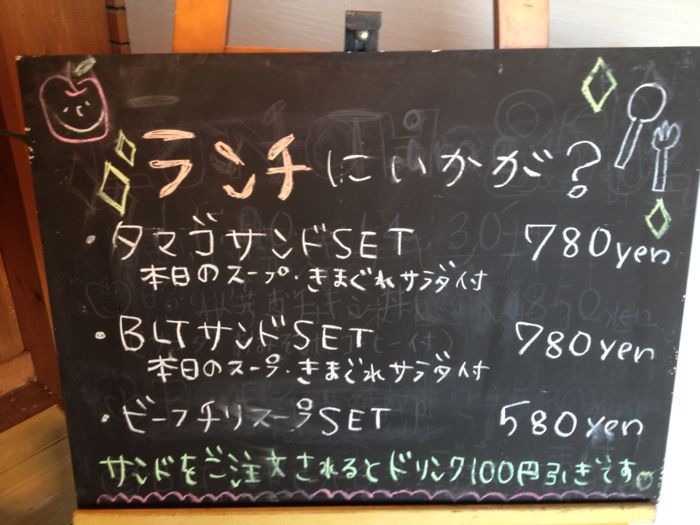 ランチにいかが?
・タマゴサンドSET 780yen
本日のスープ・きまぐれサラダ付
・BLTサンドSET 780yen
本日のスープ・きまぐれサラダ付
・ビーフチリスープSET 580yen
サンドをご注文されるとドリンク100円引きです